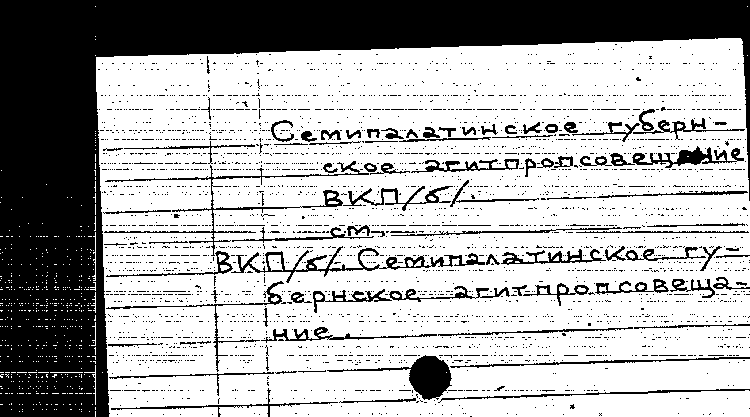 Семипалатинское губерн-
ское агитпропсовещание
ВКП/б/.
см.
ВКП/б/. Семипалатинское гу-
бернское агитпропсовеща-
ние.